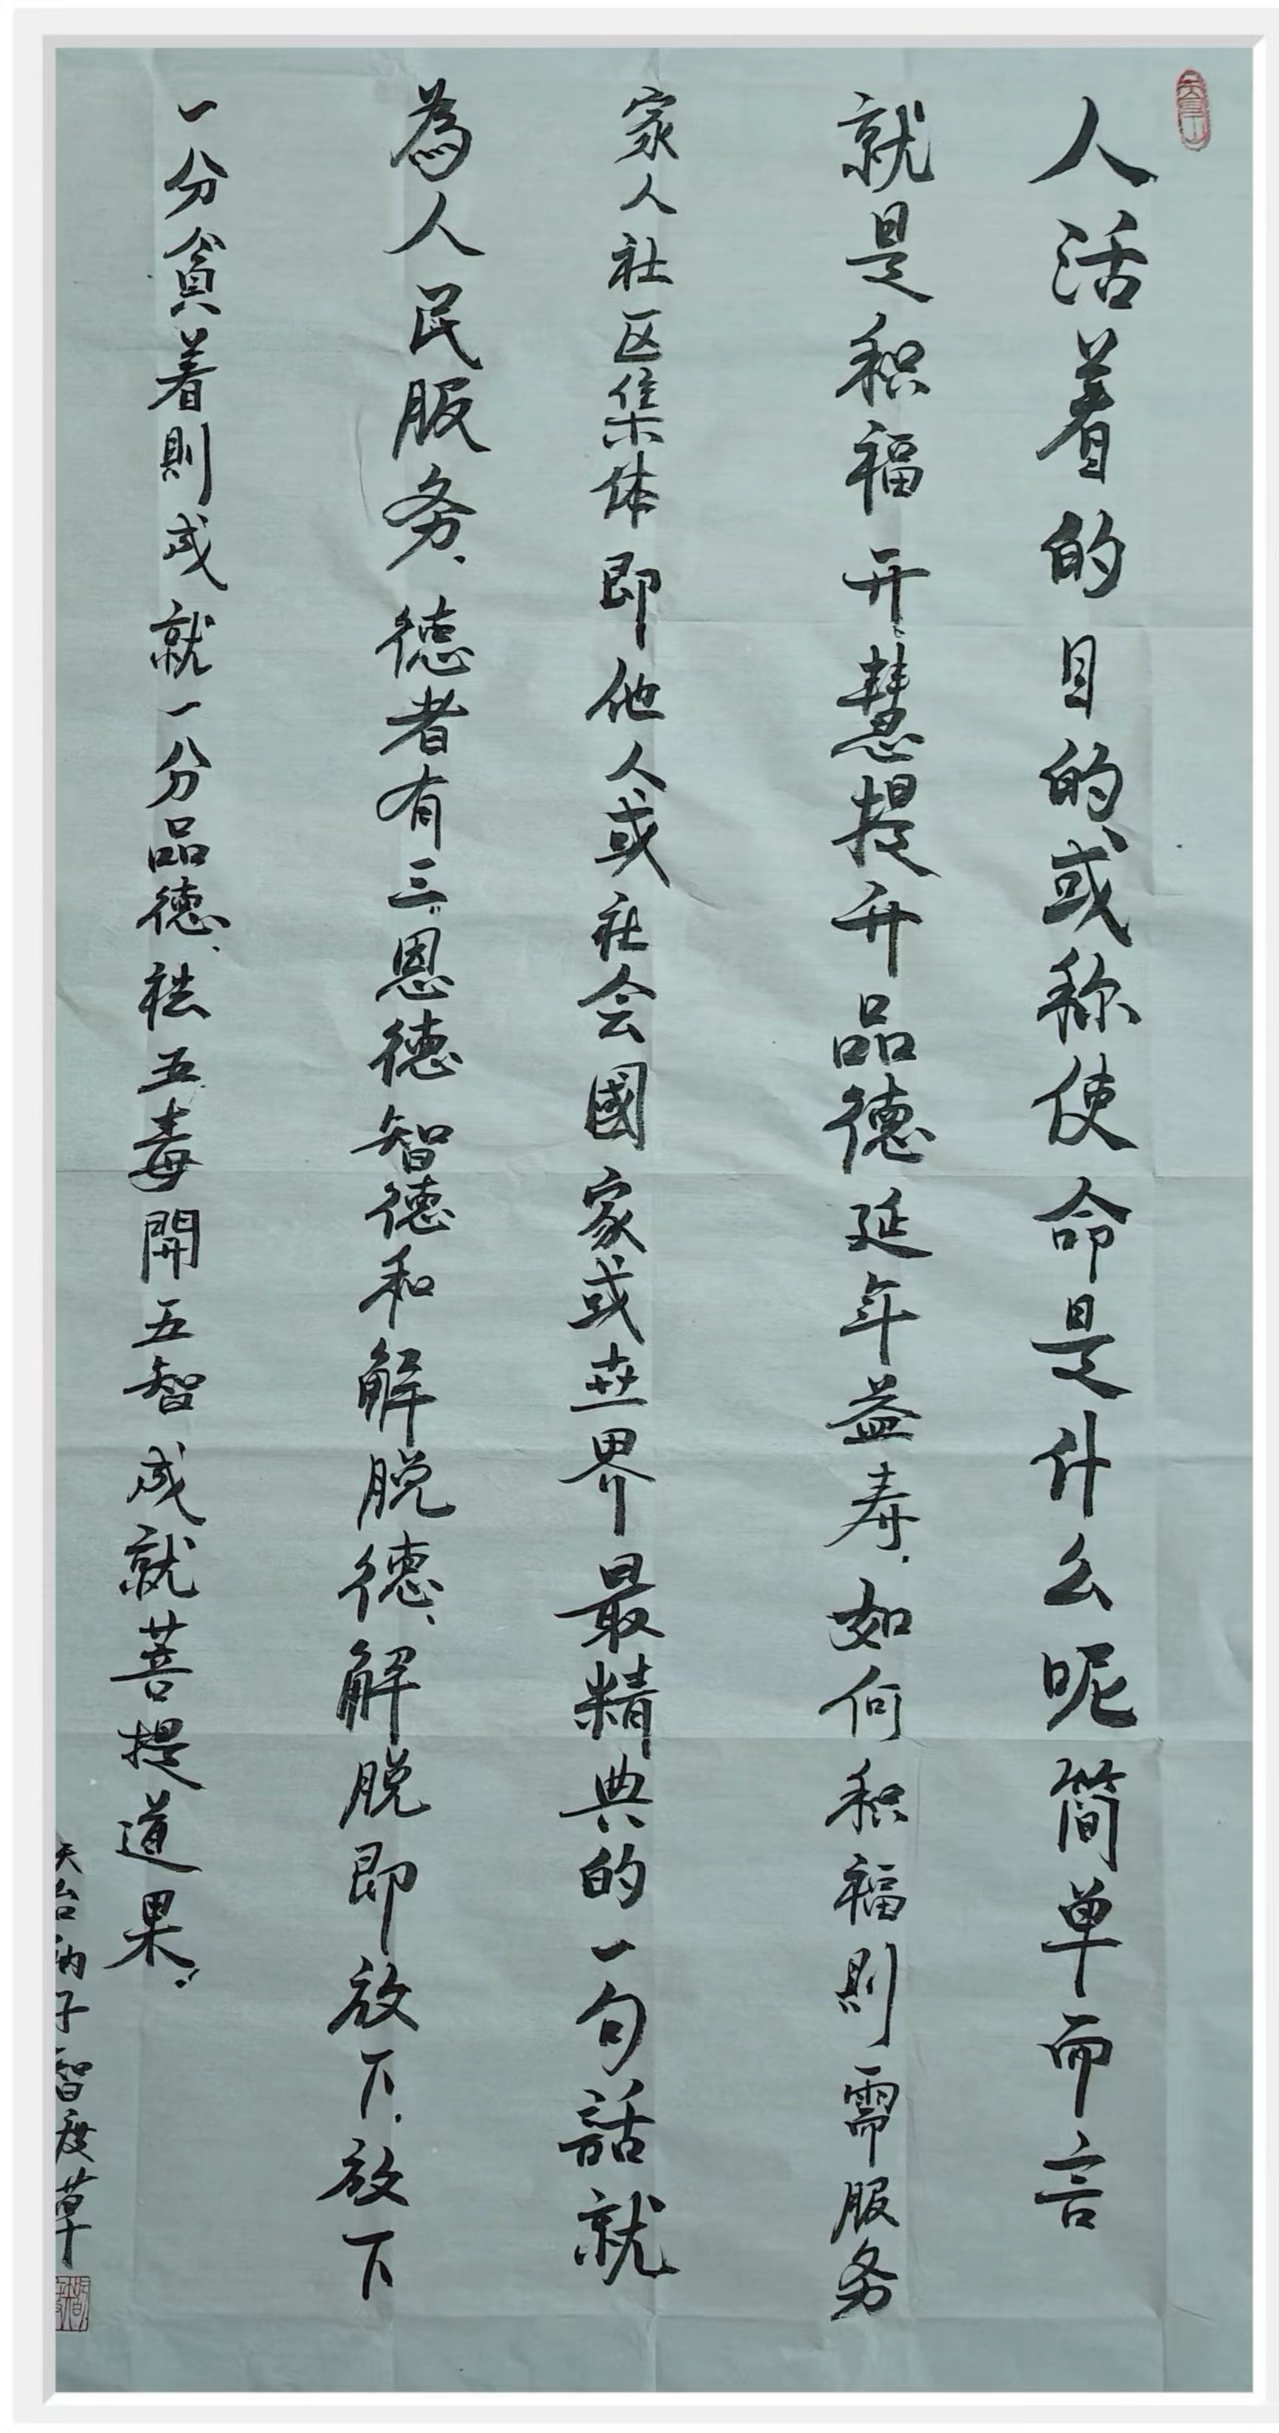 人活着的目的或称使命是什么呢简单而言
就是积福开慧提升品德延年益寿.如何积福則需服务
家人社区集体即他人或社会國家或世界最精典的一句話就
為人民服务.德者有三.恩德智德和解脱德.解脱即放下.放下
一分貪着則成就一分品德.祛五毒開五智成就菩提道果.
天台衲子智度草